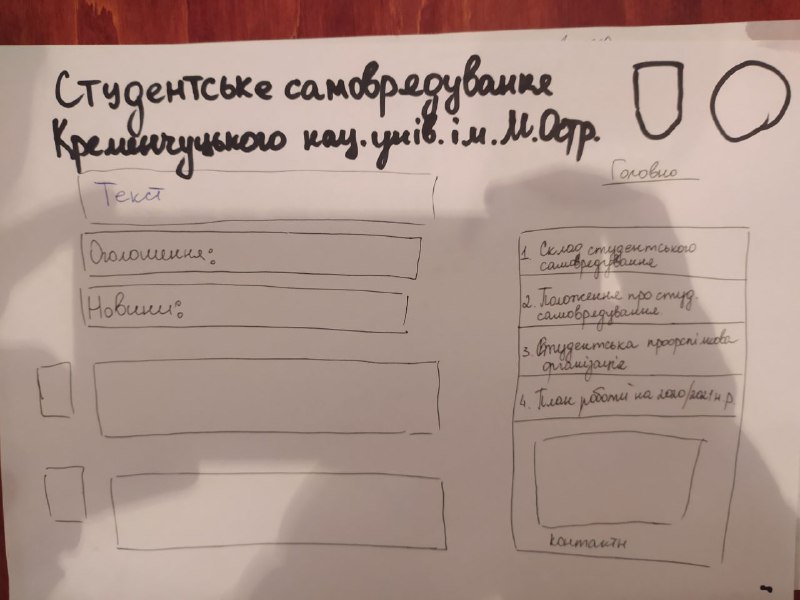 Студентське самоврядування
Кременчуцького нац.унів.ім.М.Остр.
Текст
Оголошення:
Новини:
Головно
1 Склад студентського
самоврядування
2. Положення про студ.
самоврядування
3. Студентська профспілкова
організація
4. План роботи на 2020/2021 н.р.
контакти